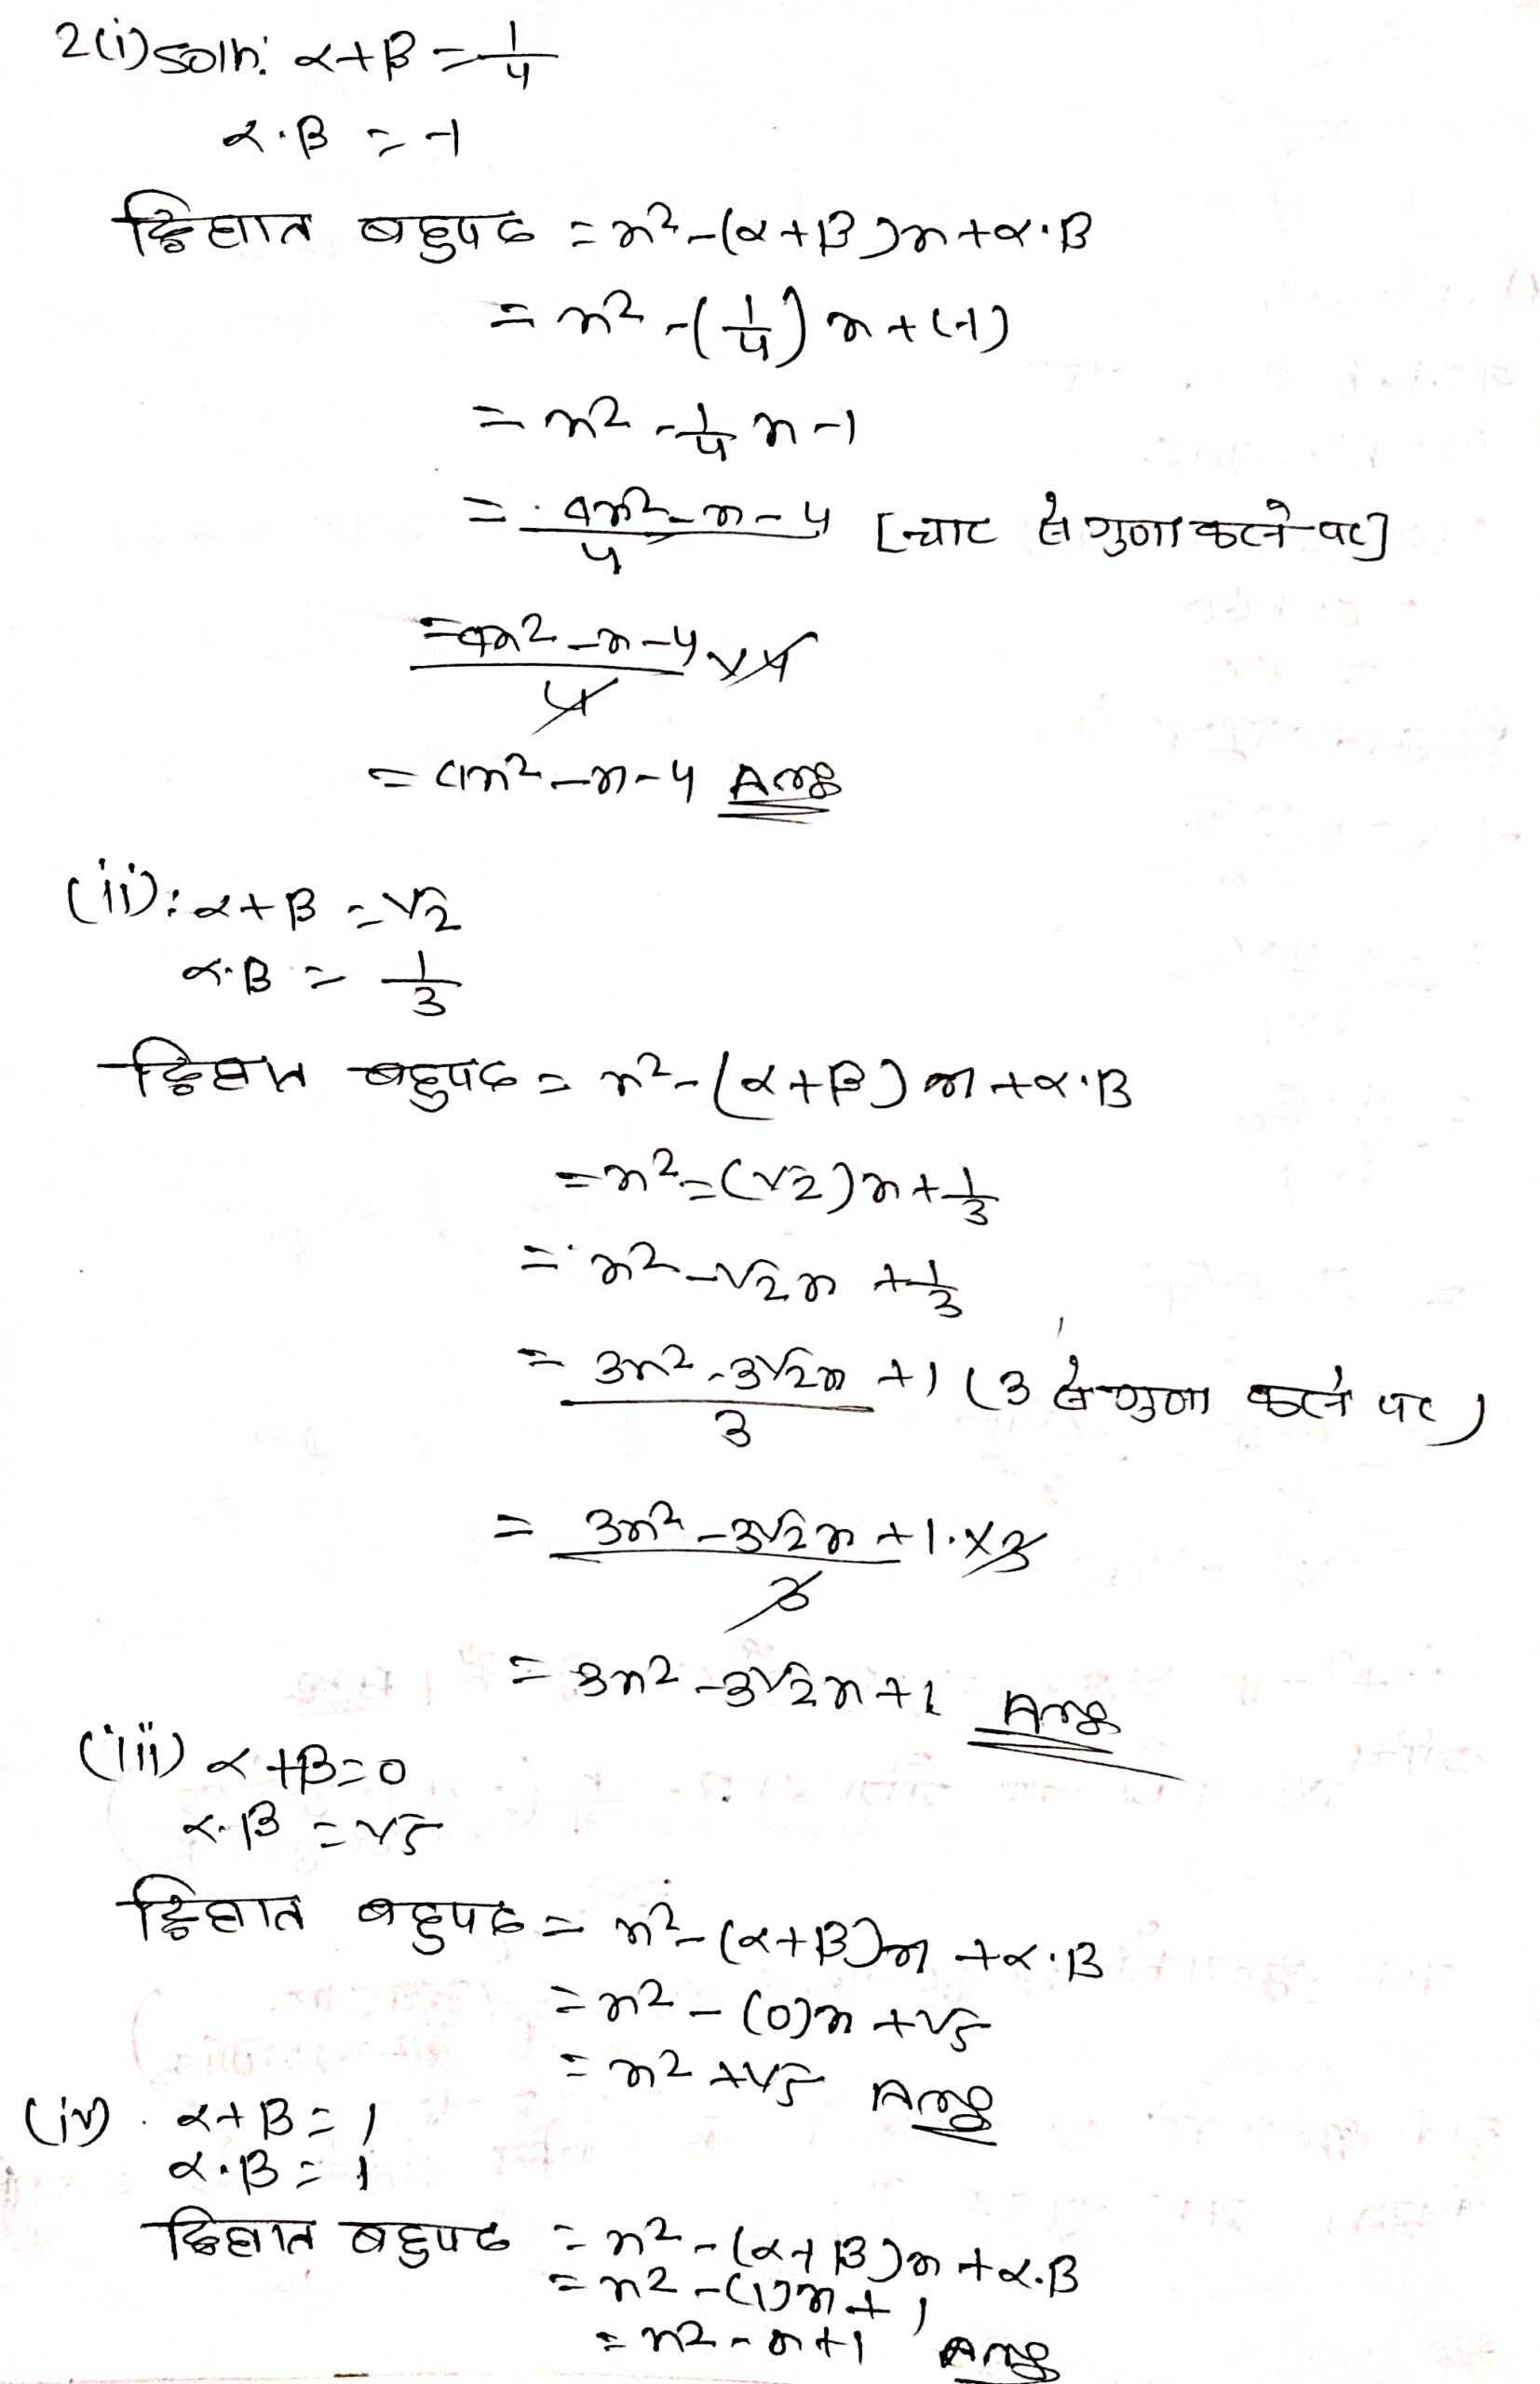 2(i) Soln: α+β = 1/4
α.β = -1
द्विघात बहुपद = x² - (α+β)x + α.β
= x² - (1/4)x + (-1)
= x² - 1/4 x - 1
= 4x² - x - 4 / 4 [चार से गुणा करने पर]
= 4x² - x - 4 / 4 × 4
= 4x² - x - 4 Ans
(ii): α+β = √2
α.β = 1/3
द्विघात बहुपद = x² - (α+β)x + α.β
= x² - (√2)x + 1/3
= x² - √2x + 1/3
= 3x² - 3√2x + 1 / 3 (3 से गुणा करने पर)
= 3x² - 3√2x + 1 / 3 × 3
= 3x² - 3√2x + 1 Ans
(iii) α+β = 0
α.β = √5
द्विघात बहुपद = x² - (α+β)x + α.β
= x² - (0)x + √5
= x² + √5 Ans
(iv) α+β = 1
α.β = 1
द्विघात बहुपद = x² - (α+β)x + α.β
= x² - (1)x + 1
= x² - x + 1 Ans